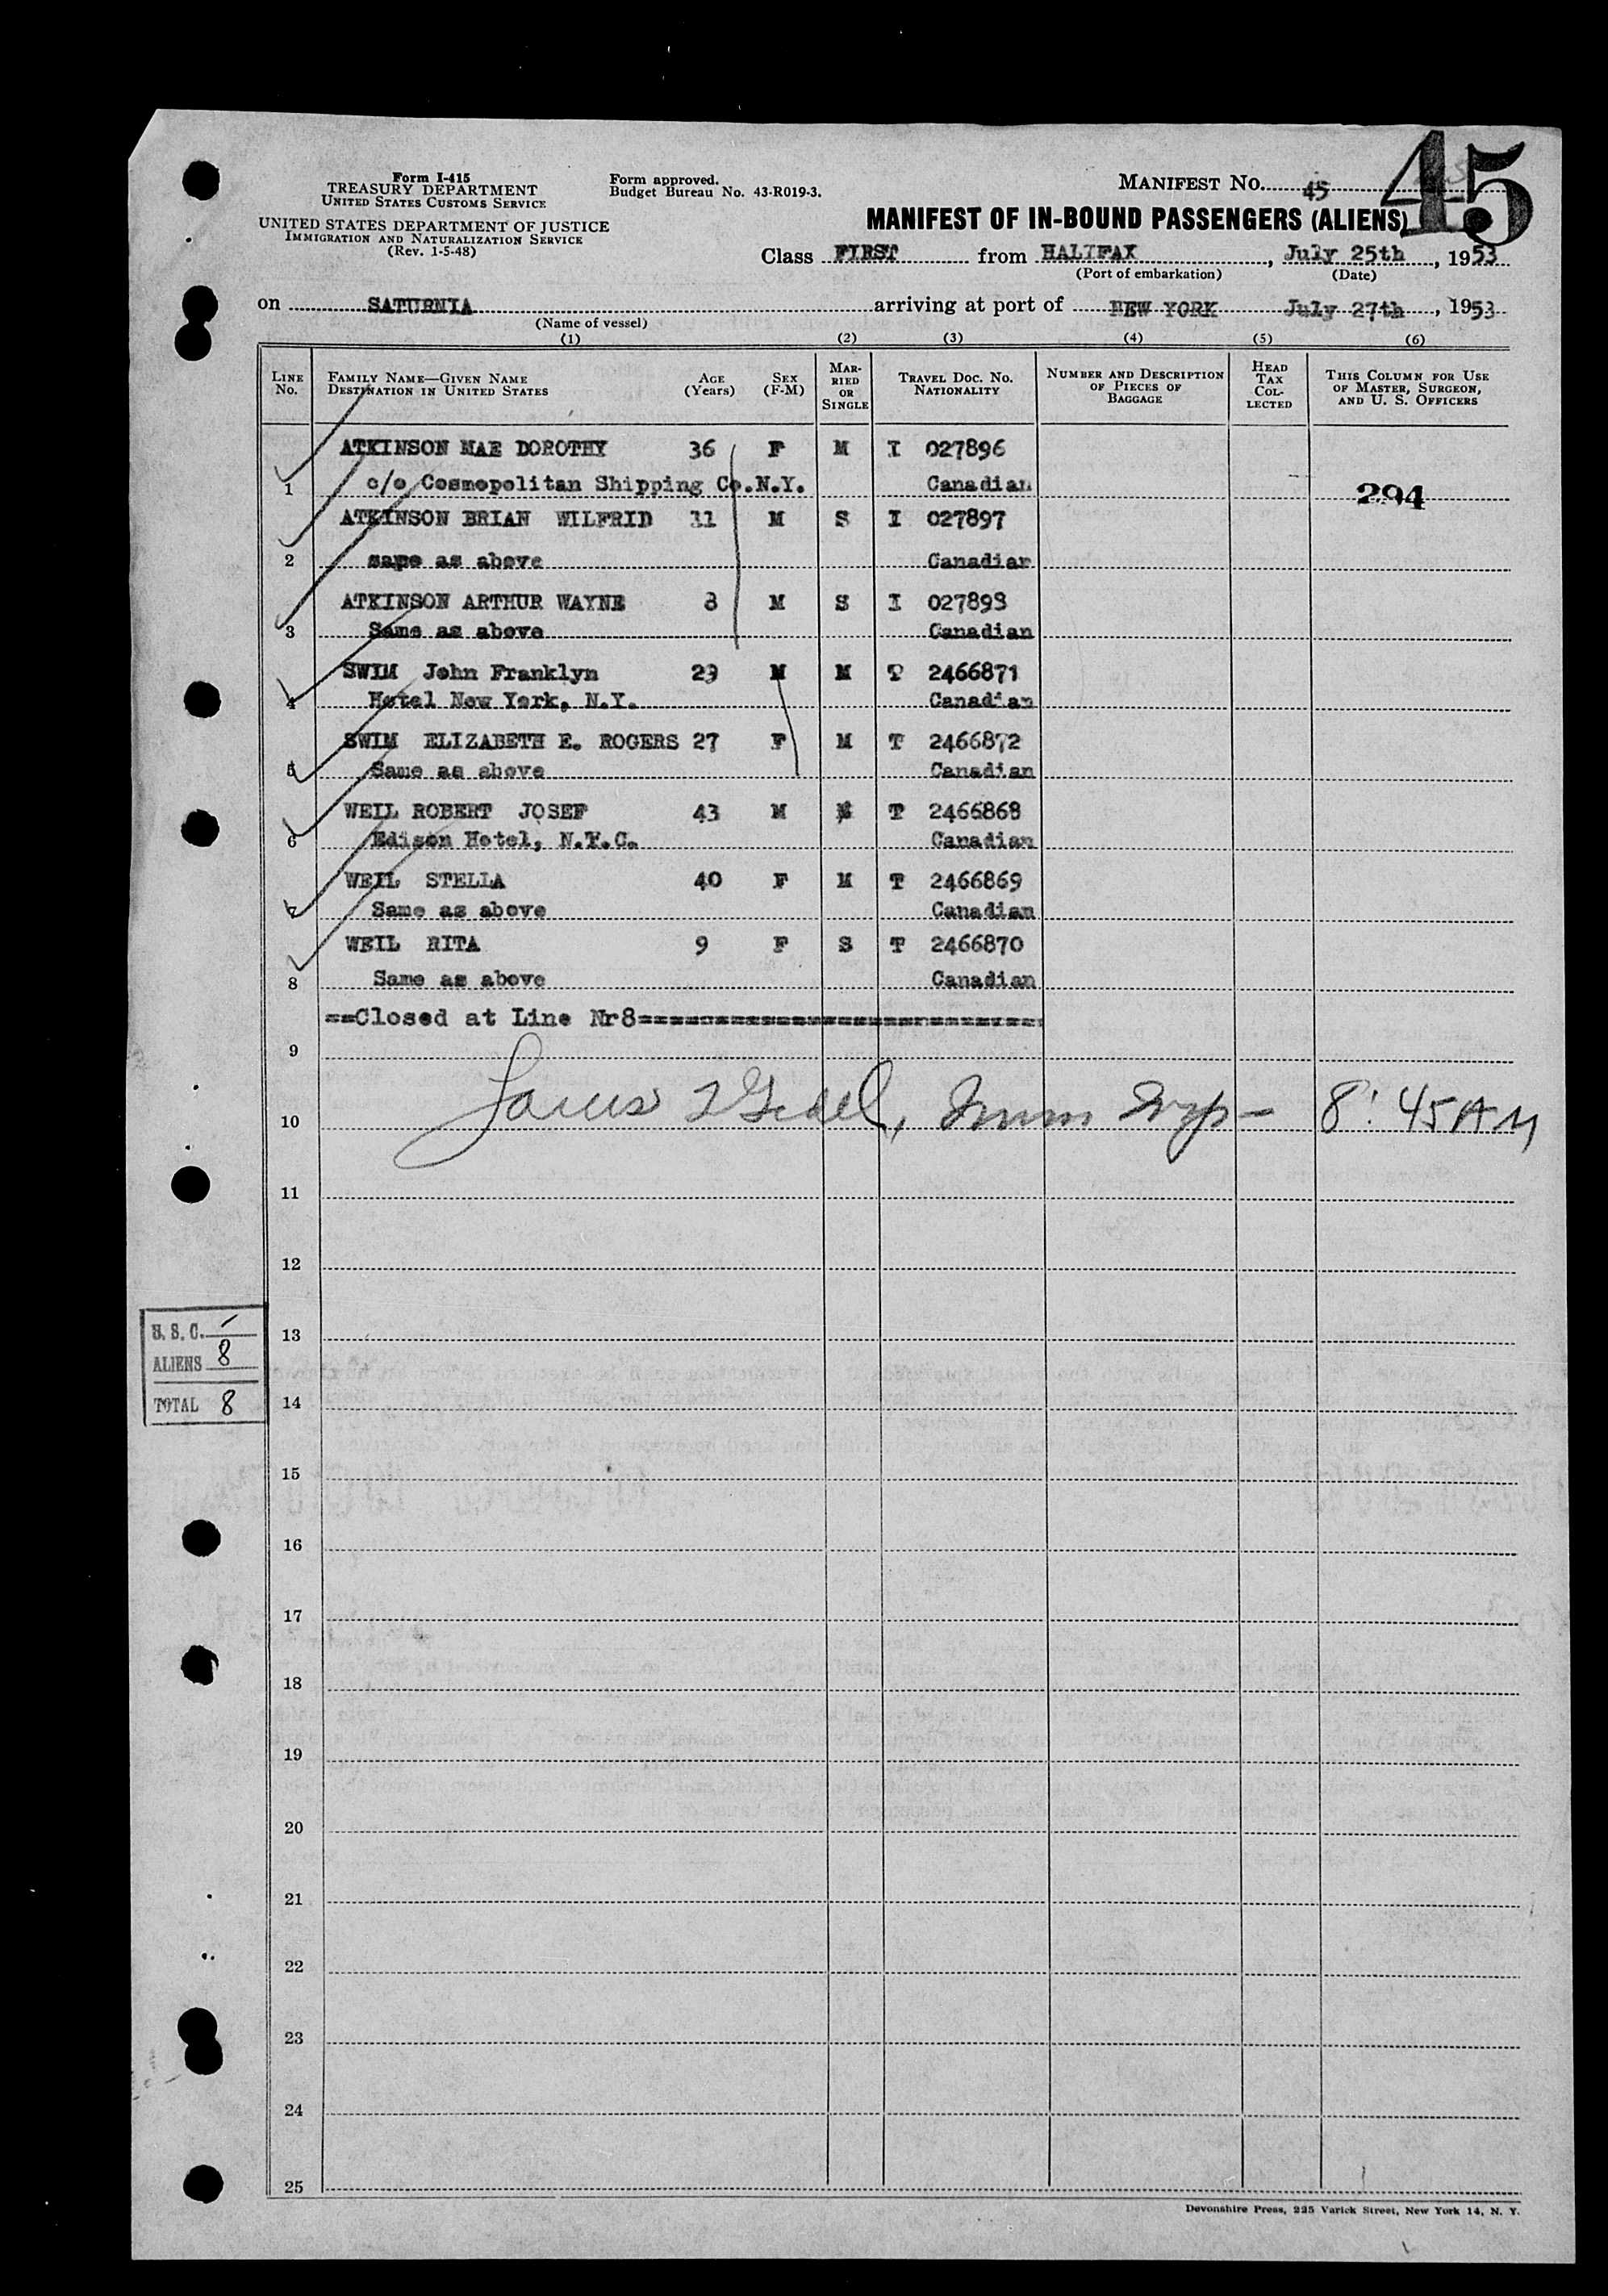 45
Form I-415
TREASURY DEPARTMENT
UNITED STATES CUSTOMS SERVICE
UNITED STATES DEPARTMENT OF JUSTICE
IMMIGRATION AND NATURALIZATION SERVICE
(Rev. 1-5-48)
Form approved.
Budget Bureau No. 43-R019-3.
MANIFEST NO. 45
MANIFEST OF IN-BOUND PASSENGERS (ALIENS)
Class FIRST from HALIFAX, July 25th, 1953
(Port of embarkation) (Date)
on SATURNIA arriving at port of NEW YORK July 27th, 1953
(Name of vessel)
(1) (2) (3) (4) (5) (6)
LINE NO. FAMILY NAME—GIVEN NAME DESTINATION IN UNITED STATES AGE (Years) SEX (F-M) MARRIED OR SINGLE TRAVEL DOC. NO. NATIONALITY NUMBER AND DESCRIPTION OF PIECES OF BAGGAGE HEAD TAX COLLECTED THIS COLUMN FOR USE OF MASTER, SURGEON, AND U. S. OFFICERS
ATKINSON MAE DOROTHY 36 F M I 027896
1 c/o Cosmopolitan Shipping Co.N.Y. Canadian 294
ATKINSON BRIAN WILFRID 11 M S I 027897
2 same as above Canadian
ATKINSON ARTHUR WAYNE 8 M S I 027898
3 Same as above Canadian
SWIM John Franklyn 29 M M T 2466871
4 Hotel New York, N.Y. Canadian
SWIM ELIZABETH E. ROGERS 27 F M T 2466872
5 Same as above Canadian
WEIL ROBERT JOSEF 43 M M T 2466868
6 Edison Hotel, N.Y.C. Canadian
WEIL STELLA 40 F M T 2466869
7 Same as above Canadian
WEIL RITA 9 F S T 2466870
8 Same as above Canadian
==Closed at Line Nr8==============================
9
10 Imm Insp - 8:45 AM
11
12
U. S. C. /
13
ALIENS 8
14
TOTAL 8
15
16
17
18
19
20
21
22
23
24
25
Devonshire Press, 225 Varick Street, New York 14, N. Y.